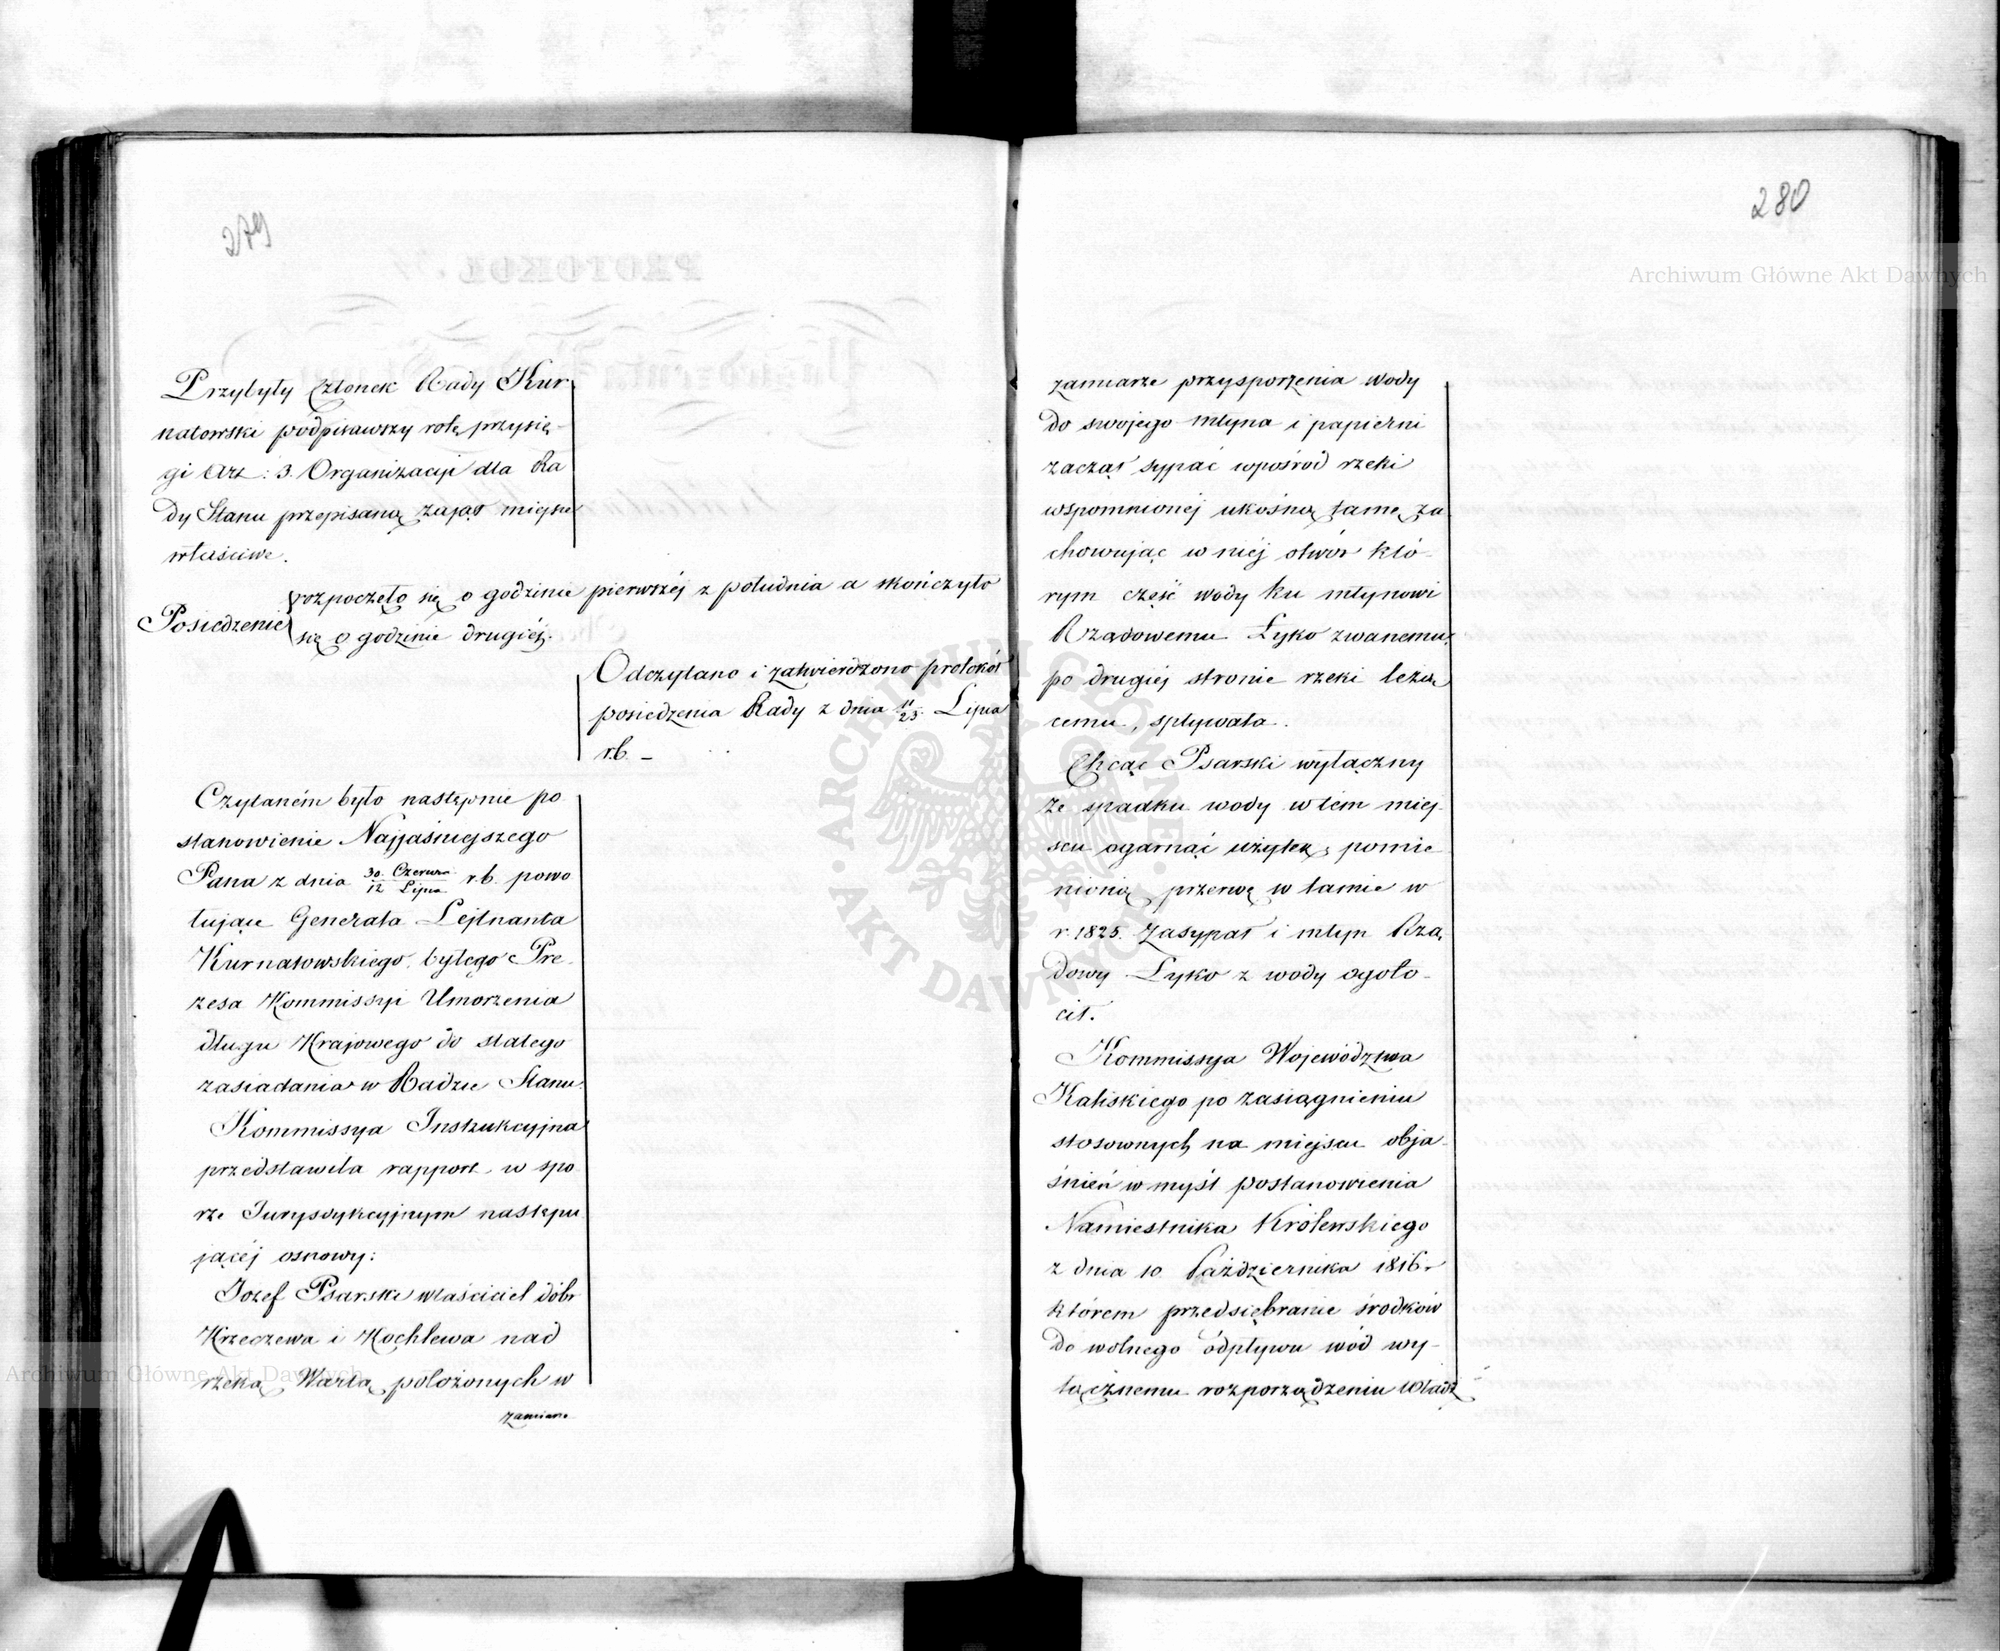 279
Przybyły Członek Rady Kur
natowski podpisawszy rotę przysię-
gi Art: 3. Organizacyi dla Ra
dy Stanu przepisaną zajął miejsce
właściwe.
Posiedzenie rozpoczęło się o godzinie pierwszéj z południa a skończyło
się o godzinie drugiéj.
Odczytano i zatwierdzono protokół
posiedzenia Rady z dnia 11/23. Lipca
r.b. _
Czytaném było następnie po
stanowienie Najjaśniejszego
Pana z dnia 30. Czerwca/12 Lipca r.b. powo
łujące Generała Lejtnanta
Kurnatowskiego, byłego Pre-
zesa Kommissyi Umorzenia
długu Krajowego do stałego
zasiadania w Radzie Stanu.
Kommissya Instrukcyjna
przedstawiła rapport w spo
rze Jurysdykcyjnym następu
jącéj osnowy:
Jozef Psarski właściciel dóbr
Krzeczewa i Kochlewa nad
rzeką Wartą położonych w
zamiarze
280
Archiwum Główne Akt Dawnych
zamiarze przysporzenia wody
do swojego młyna i papierni
zaczął sypać wpośród rzeki
wspomnionéj ukośną tamę za
chowując w niéj otwór któ-
rym część wody ku młynowi
Rządowemu Łyko zwanemu,
po drugiéj stronie rzeki leżą
cemu, spływała.
Chcąc Psarski wyłączny
ze spadku wody w tém miej-
scu ogarnąć użytek, pomie
nioną przerwę w tamie w
r. 1825. Zasypał i młyn Rzą
dowy Łyko z wody ogoło-
cił.
Kommissya Województwa
Kaliskiego po zasiągnieniu
stosownych na miejscu obja-
śnień w myśl postanowienia
Namiestnika Królewskiego
z dnia 10 Października 1816 r
którem przedsiębranie środków
do wolnego odpływu wód wy-
łącznemu rozporządzeniu Władz
ARCHIWUM GŁÓWNE AKT DAWNYCH
Archiwum Główne Akt Dawnych